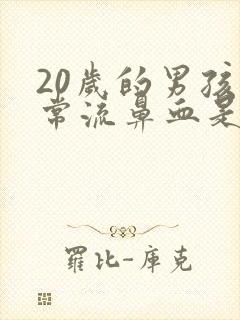 20歲的男孩
常流鼻血是
羅比-庫克